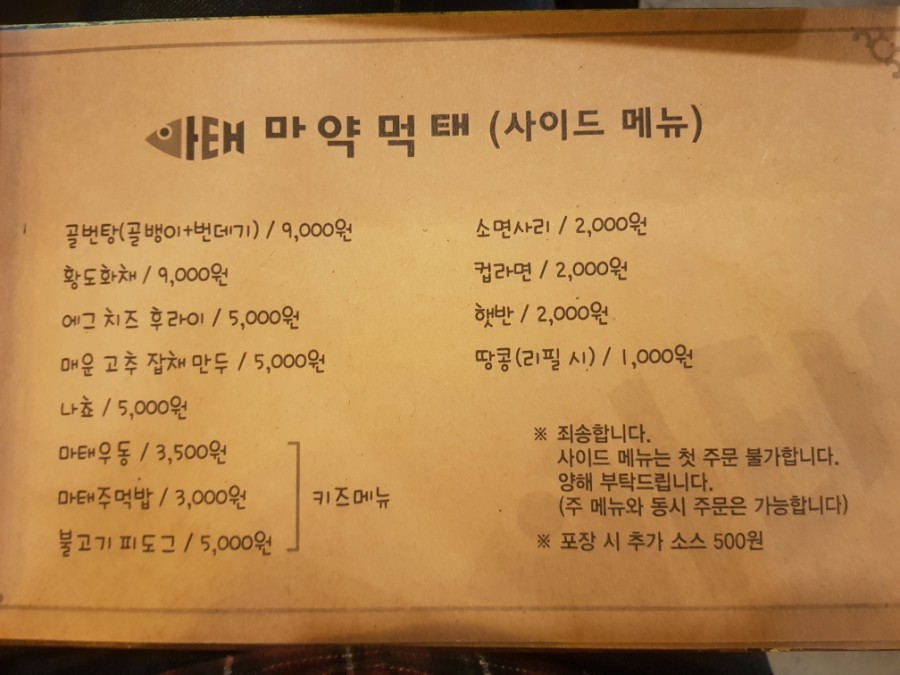 마태 마약먹태 (사이드 메뉴)
골번탕(골뱅이+번데기) / 9,000원
황도화채 / 9,000원
에그 치즈 후라이 / 5,000원
매운 고추 잡채 만두 / 5,000원
나쵸 / 5,000원
마태우동 / 3,500원
마태주먹밥 / 3,000원
불고기 피도그 / 5,000원
키즈메뉴
소면사리 / 2,000원
컵라면 / 2,000원
햇반 / 2,000원
땅콩(리필 시) / 1,000원
※ 죄송합니다.
사이드 메뉴는 첫 주문 불가합니다.
양해 부탁드립니다.
(주 메뉴와 동시 주문은 가능합니다)
※ 포장 시 추가 소스 500원